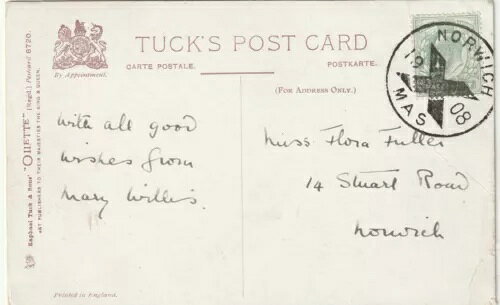 TUCK'S POST CARD
CARTE POSTALE. POSTKARTE.
By Appointment.
(FOR ADDRESS ONLY.)
Raphael Tuck & Sons' "OILETTE" (Regd.) Postcard 8720.
ART PUBLISHERS TO THEIR MAJESTIES THE KING & QUEEN.
NORWICH
19 08
MAS
With all good
wishes from
Mary Willis.
Miss Flora Fuller
14 Stuart Road
Norwich
Printed in England.